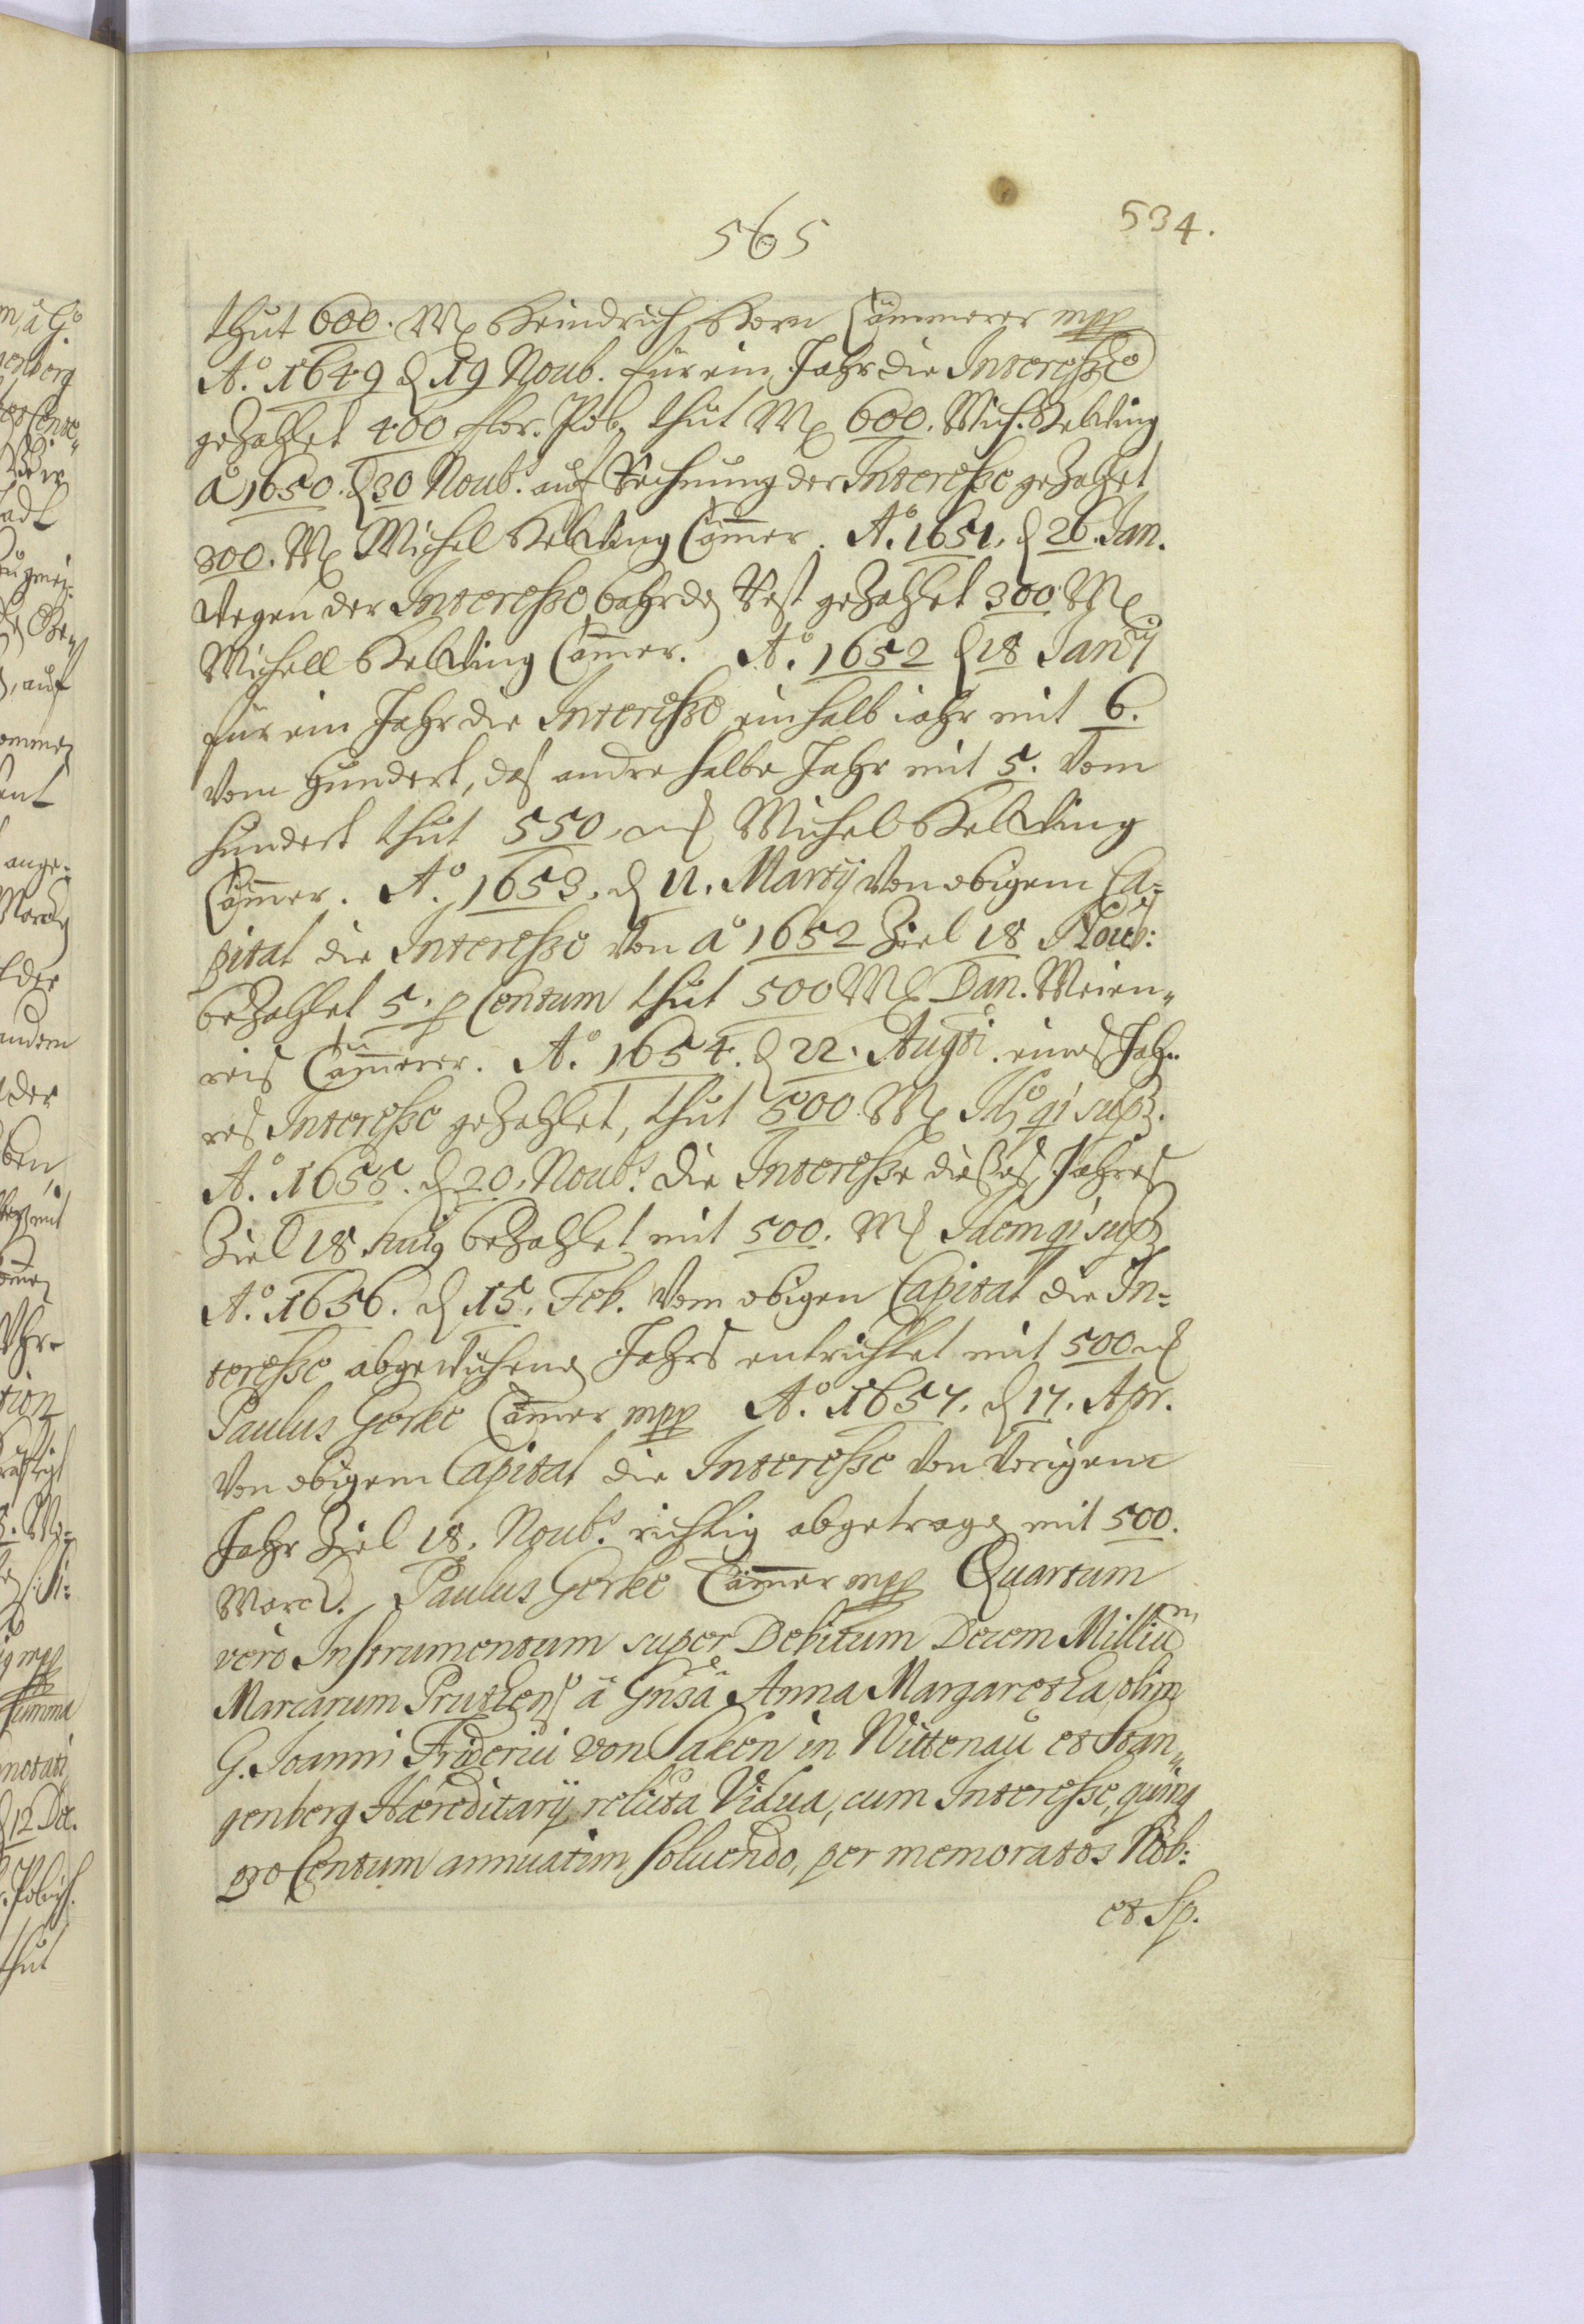 565
534.
thut 600. M Heindrich Horn Cämmerer mpp
A.º 1649 d 19 Noub. für ein Jahr die Interesse
gezahlet 400 flor. Pol, thut M 600. Mich. Behring
aº 1650. d 30 Noub. auf Rechnung der Interesse gezahlet
300. M Michel Behring Cämer. Aº. 1651. d 26. Jan.
wegen der Interesse bahrden Rest gezahlet 300 M
Michell Behring Cämer. Aº. 1652 d 18 Januarij
für ein Jahr die Interesse ein halb iahr mit 6.
vom Hundert, das andre halbe Jahr mit 5. vom
hundert thut 550, M Michel Behring
Cämer. Aº. 1653. d 11. Martij Von obigem Ca=
pital die Interesse von aº 1652 Ziel 18 Noub:
bezahlet 5. p Centum thut 500 M Dan. Meien„
reis Cämerer. Aº. 1654. d 22. Augti. eines Jah„
res Interesse gezahlet, thut 500 M Id qi sup.
Aº. 1655. d 20. Noub. Die Interesse dieses Jahres
Ziel 18 huig bezahlet mit 500. M Idem qi sup
Aº. 1656. d 15. Feb. Vom obigen Capital die In=
teresse abgewichenen Jahrs entrichtet mit 500 M
Paulus Gorke Cämer mpp Aº. 1657. d 17. Apr.
Von obigem Capital die Interesse von vorigem
Jahr Ziel 18. Noub. richtig abgetragen mit 500.
Marck. Paulus Gorke Cämer mpp Quartum
vero Instrumentum super Debitum Decem Milliu
Marcarum Prutens à Gnsâ Anna Margaretha olim
G. Joanni Friderici von Saken in Wittenau et Stan„
genberg Hæreditarij relicta Vidua, cum Interesse, quinq
pro Centum annuatim soluendo, per memoratos Nob:
et Sp.